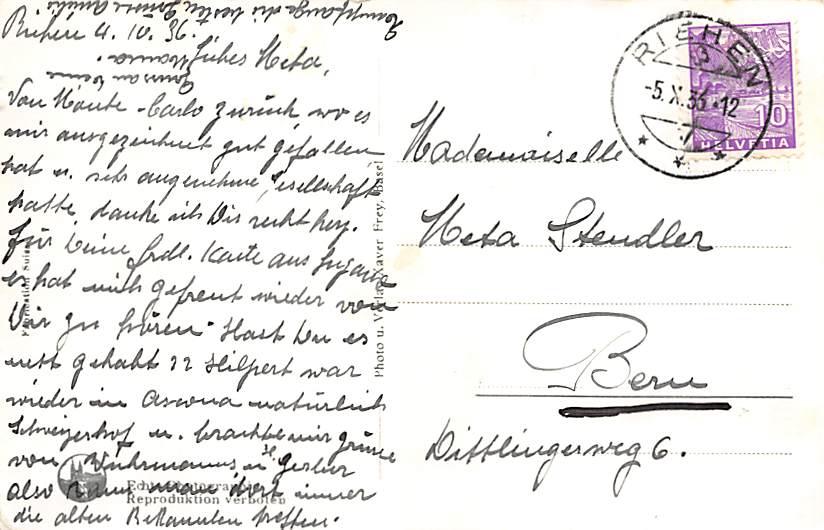 Riehen 4. IV. 36.
Liebes Meta,
Von Monte-Carlo zurück wo es
mir ausgezeichnet gut gefallen
hat u. sehr angenehme Gesellschaft
hatte, danke ich Dir recht herz.
für Deine frdl. Karte aus Lugano
es hat mich gefreut wieder von
Dir zu hören. Hast Du es
nett gehabt?? Hilpert war
wieder in Ascona natürlich
Schweizerhof u. brachte mir Grüsse
von u.
also kann man dort immer
die alten Bekannten treffen.
Empfange die besten Grüsse
von
Fabrikation Suisse
Photo u. Verlag Xaver Frey, Basel
Echte Photographie
Reproduktion verboten
RIEHEN
-5.X.36-12
10
HELVETIA
Mademoiselle
Meta Stendler
Bern
Dittlingerweg 6.